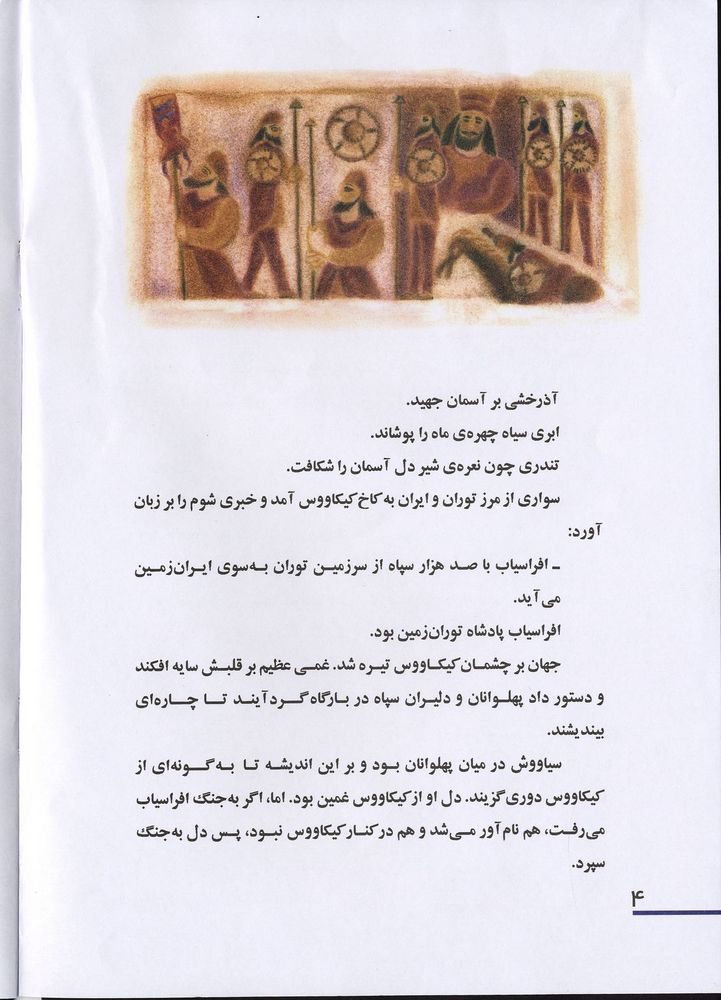 آذرخشی بر آسمان جهید.
ابری سیاه چهره‌ی ماه را پوشاند.
تندری چون نعره‌ی شیر دل آسمان را شکافت.
سواری از مرز توران و ایران به کاخ کیکاووس آمد و خبری شوم را بر زبان
آورد:
ـ افراسیاب با صد هزار سپاه از سرزمین توران به‌سوی ایران‌زمین
می‌آید.
افراسیاب پادشاه توران‌زمین بود.
جهان بر چشمان کیکاووس تیره شد. غمی عظیم بر قلبش سایه افکند
و دستور داد پهلوانان و دلیران سپاه در بارگاه گرد آیند تا چاره‌ای
بیندیشند.
سیاووش در میان پهلوانان بود و بر این اندیشه تا به‌گونه‌ای از
کیکاووس دوری گزیند. دل او از کیکاووس غمین بود. اما، اگر به‌جنگ افراسیاب
می‌رفت، هم نام‌آور می‌شد و هم در کنار کیکاووس نبود، پس دل به‌جنگ
سپرد.
۴